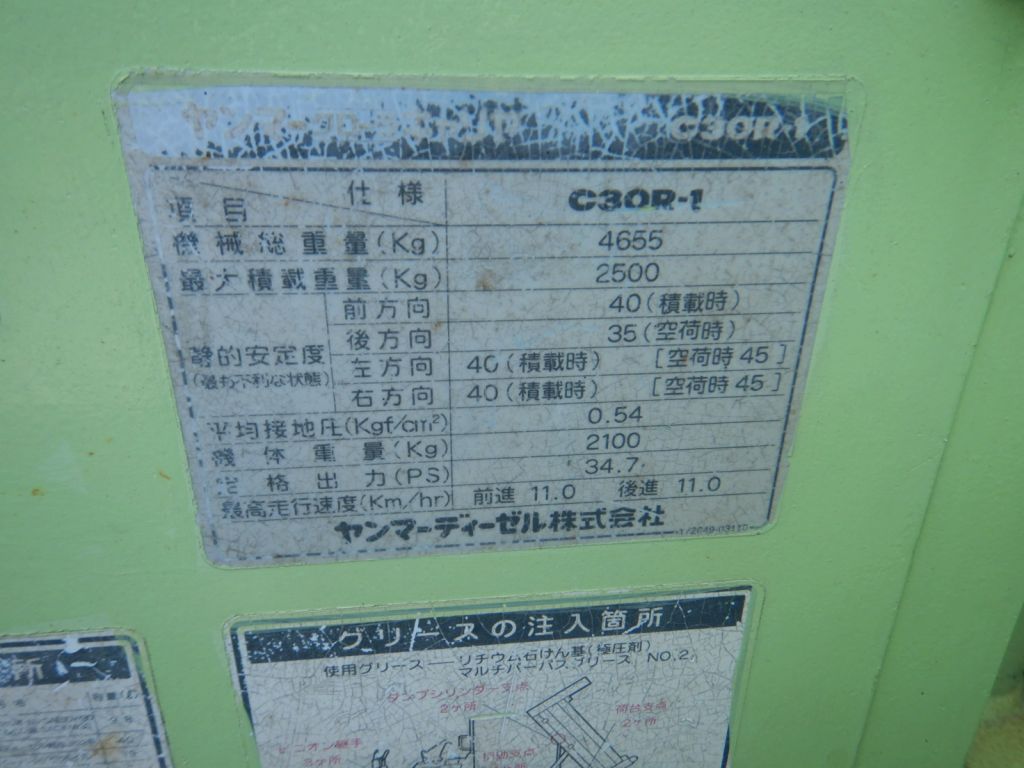 ヤンマークローラキャリヤ C30R-1
仕様 C30R-1
項目
機械総重量(Kg) 4655
最大積載重量(Kg) 2500
静的安定度 (最も不利な状態)
前方向 40(積載時)
後方向 35(空荷時)
左方向 40(積載時) [空荷時45]
右方向 40(積載時) [空荷時45]
平均接地圧(Kgf/cm²) 0.54
機体重量(Kg) 2100
定格出力(PS) 34.7
最高走行速度(Km/hr) 前進 11.0 後進 11.0
ヤンマーディーゼル株式会社
グリースの注入箇所
使用グリース―リチウム石けん基(極圧剤)
マルチパーパスグリース NO.2
ダンプシリンダー支点
2ヶ所
荷台支点
2ヶ所
ピニオン継手
3ヶ所
所